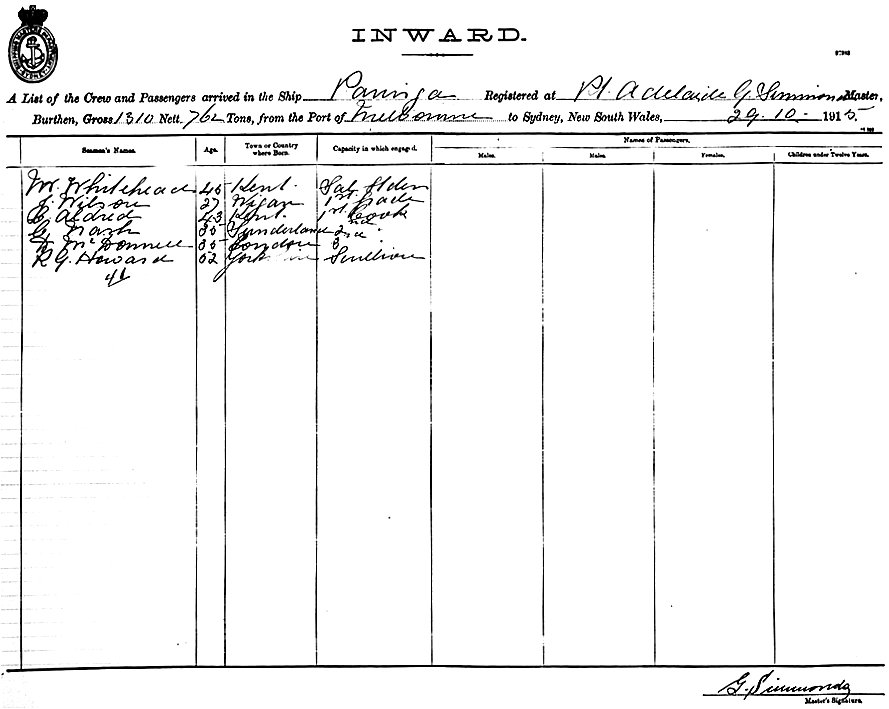 INWARD.
A List of the Crew and Passengers arrived in the Ship Paringa Registered at Pt. Adelaide G. Simmonds Master,
Burthen, Gross 1310 Nett. 762 Tons, from the Port of Melbourne to Sydney, New South Wales, 29.10. 1915.
Seamen's Names. Age. Town or Country where Born. Capacity in which engaged. Names of Passengers.
Males. Males. Females. Children under Twelve Years.
W. Whitehead 46 Kent.
J. Wilson 27 Wigan 1st
Aldred 43 Kent. 1st Cook
G. Nash 35 Sunderland 2nd "
McDonnell 35 London 3rd "
R G. Howard 52 York Scullion
46
G. Simmonds
Master's Signature.